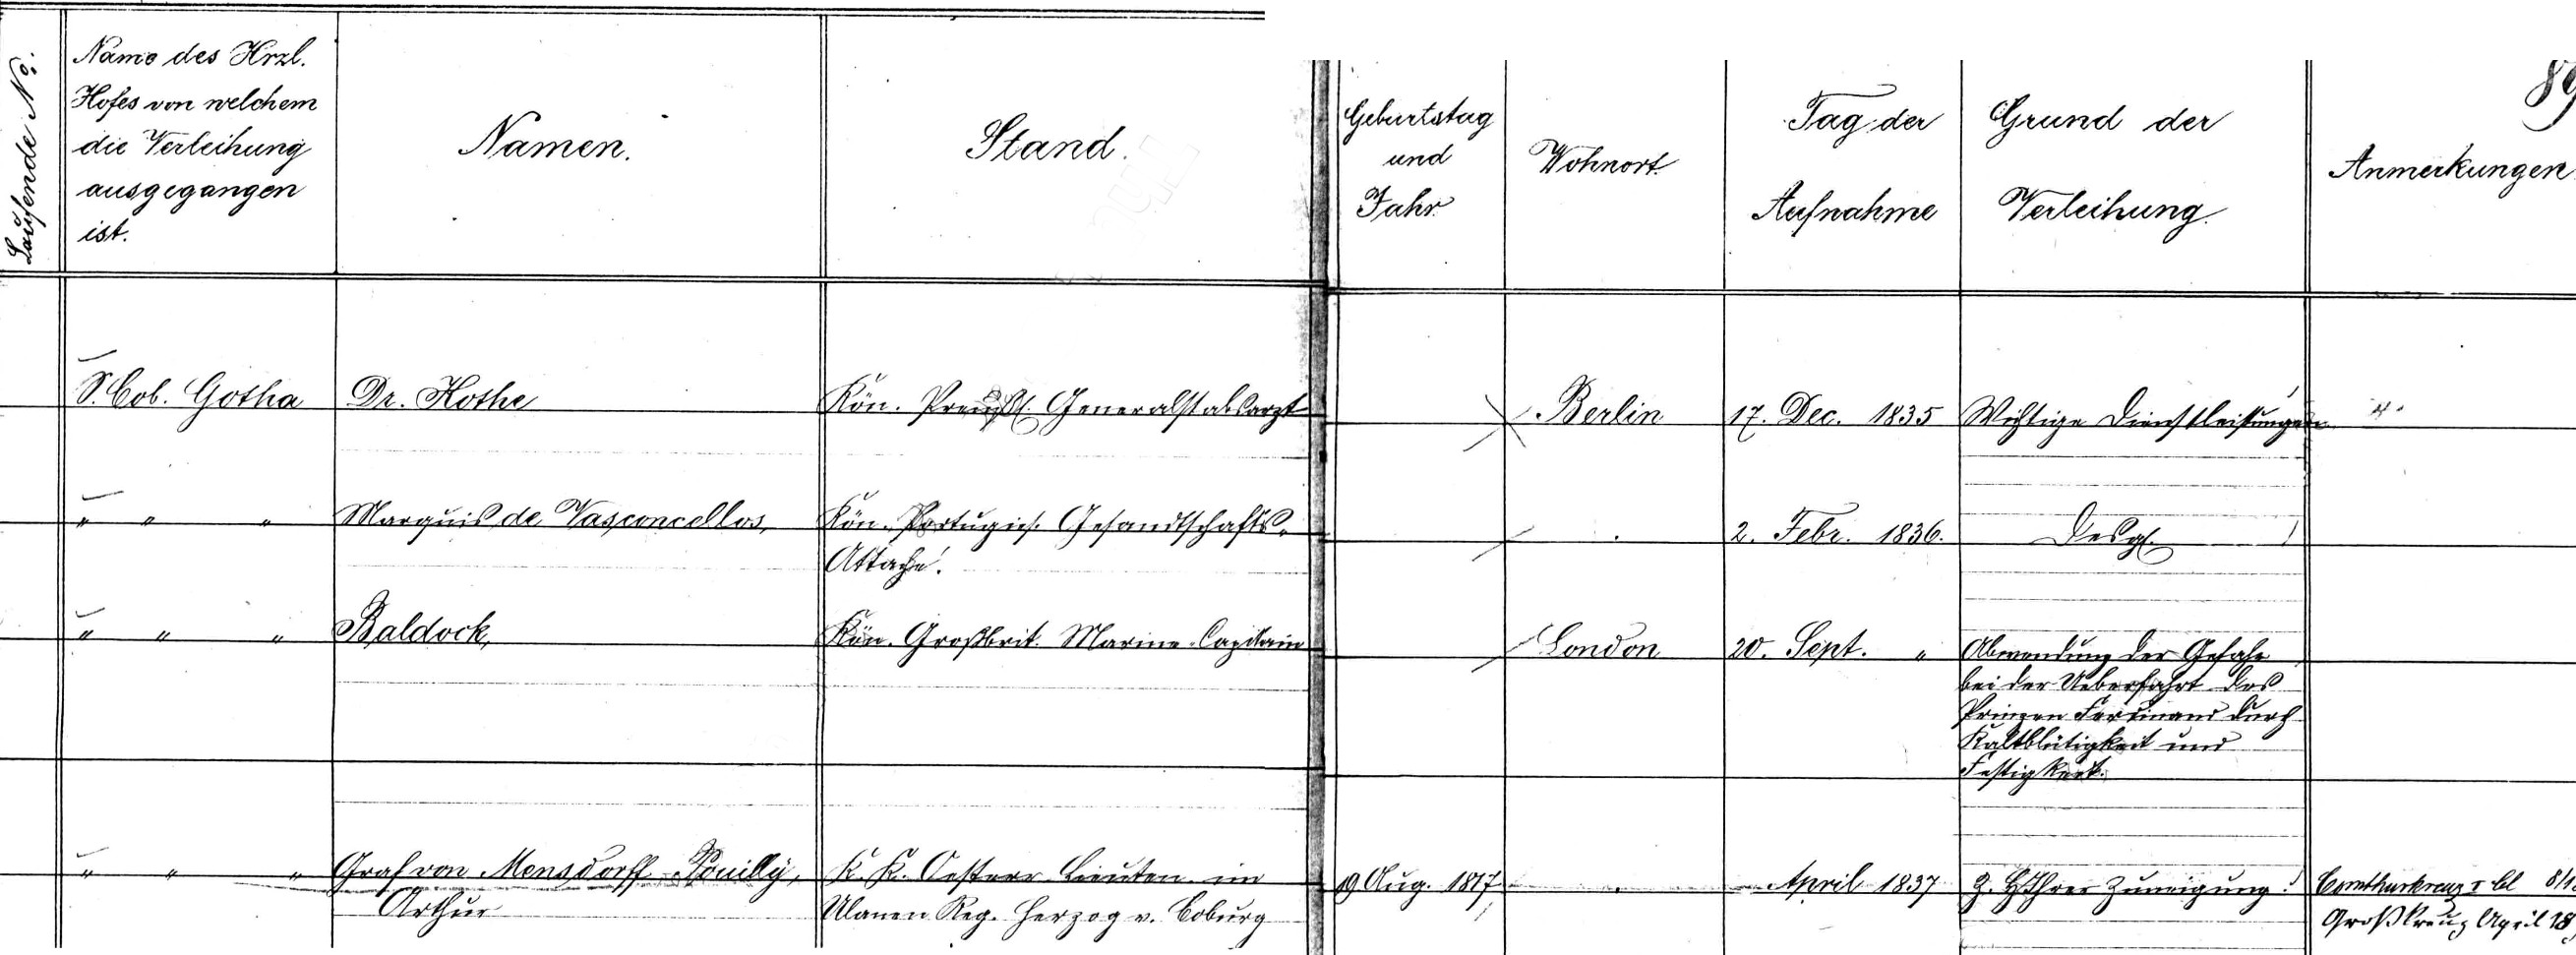 Laufende No.
Name des Hrzl.
Hofes von welchem
die Verleihung
ausgegangen
ist.
Namen.
Stand.
Geburtstag
und
Jahr
Wohnort.
Tag der
Aufnahme
Grund der
Verleihung.
89
Anmerkungen
S. Cob. Gotha Dr. Kothe Kön. Preuß. Generalstabsarzt Berlin 17. Dec. 1835 Wichtige Dienstleistungen
" " " Marquis de Vasconcellos, Kön. Portugies. Gesandtschafts-
Attaché.
2. Febr. 1836. Desgl.
" " " Baldock, Kön. Großbrit. Marine-Capitain London 20. Sept. " Abwendung der Gefahr
bei der Ueberfahrt des
Prinzen Ferdinand durch
Kaltblütigkeit und
Festigkeit.
" " " Graf von Mensdorff-Pouilly, K. K. Oesterr Lieuten. im 19 Aug. 1817 April 1837 Zuneigung. Comthurkreuz I Cl
Arthur Ulanen Reg. Herzog v. Coburg Großkreuz April 18